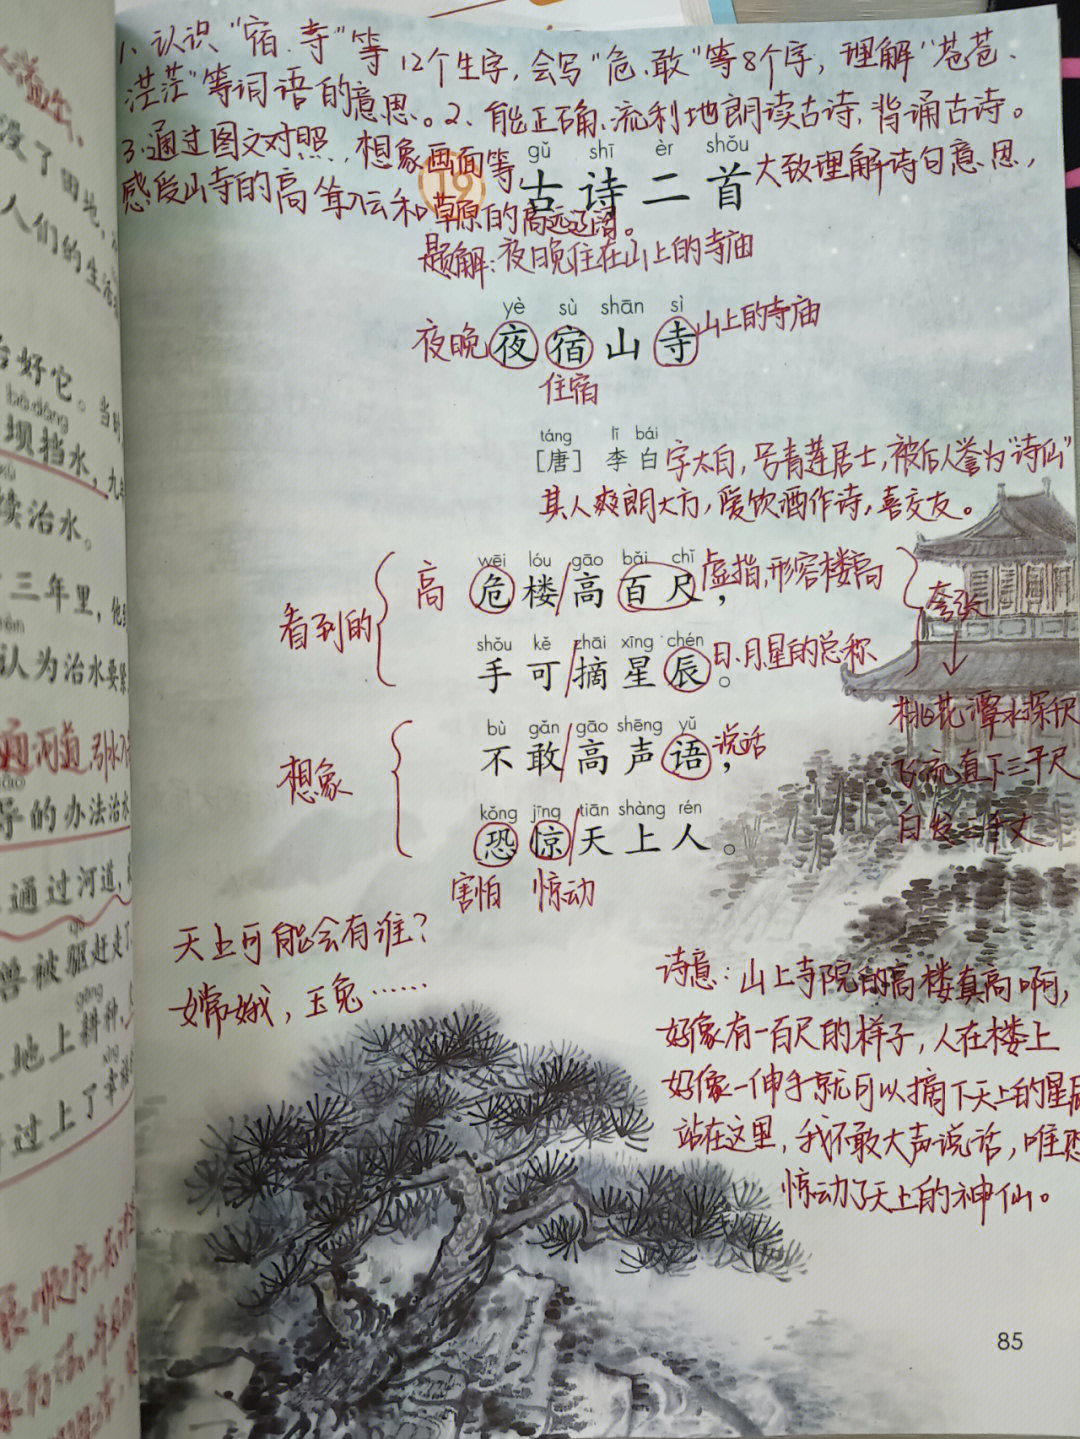 1、认识“宿、寺”等12个生字,会写“危、敢”等8个字,理解“苍苍、
茫茫”等词语的意思。2、能正确、流利地朗读古诗,背诵古诗。
3、通过图文对照,想象画面等,大致理解诗句意思,
感受山寺的高耸入云和草原的高远辽阔。
gǔ shī èr shǒu
19 古诗二首
题解:夜晚住在山上的寺庙
yè sù shān sì
夜晚 夜宿山寺 山上的寺庙
住宿
táng lǐ bái
[唐] 李白 字太白,号青莲居士,被后人誉为“诗仙”
其人爽朗大方,爱饮酒作诗,喜交友。
wēi lóu gāo bǎi chǐ
高 危楼/高百尺, 虚指,形容楼高
看到的 夸张
shǒu kě zhāi xīng chén
手可/摘星辰。 日、月、星的总称
桃花潭水深千尺
飞流直下三千尺
白发三千丈
bù gǎn gāo shēng yǔ
不敢/高声语, 说话
想象
kǒng jīng tiān shàng rén
恐惊/天上人。
害怕 惊动
天上可能会有谁?
嫦娥,玉兔……
诗意:山上寺院的高楼真高啊,
好像有一百尺的样子,人在楼上
好像一伸手就可以摘下天上的星辰
站在这里,我不敢大声说话,唯恐
惊动了天上的神仙。
85
没了田地,
人们的生活
治好它。当时
bà dǎng
坝挡水,九
续治水。
三年里,他
认为治水要
通河道,引水入
好的办法治水
通过河道,
兽被驱赶走了
gēng
地上耕种,
过上了幸福